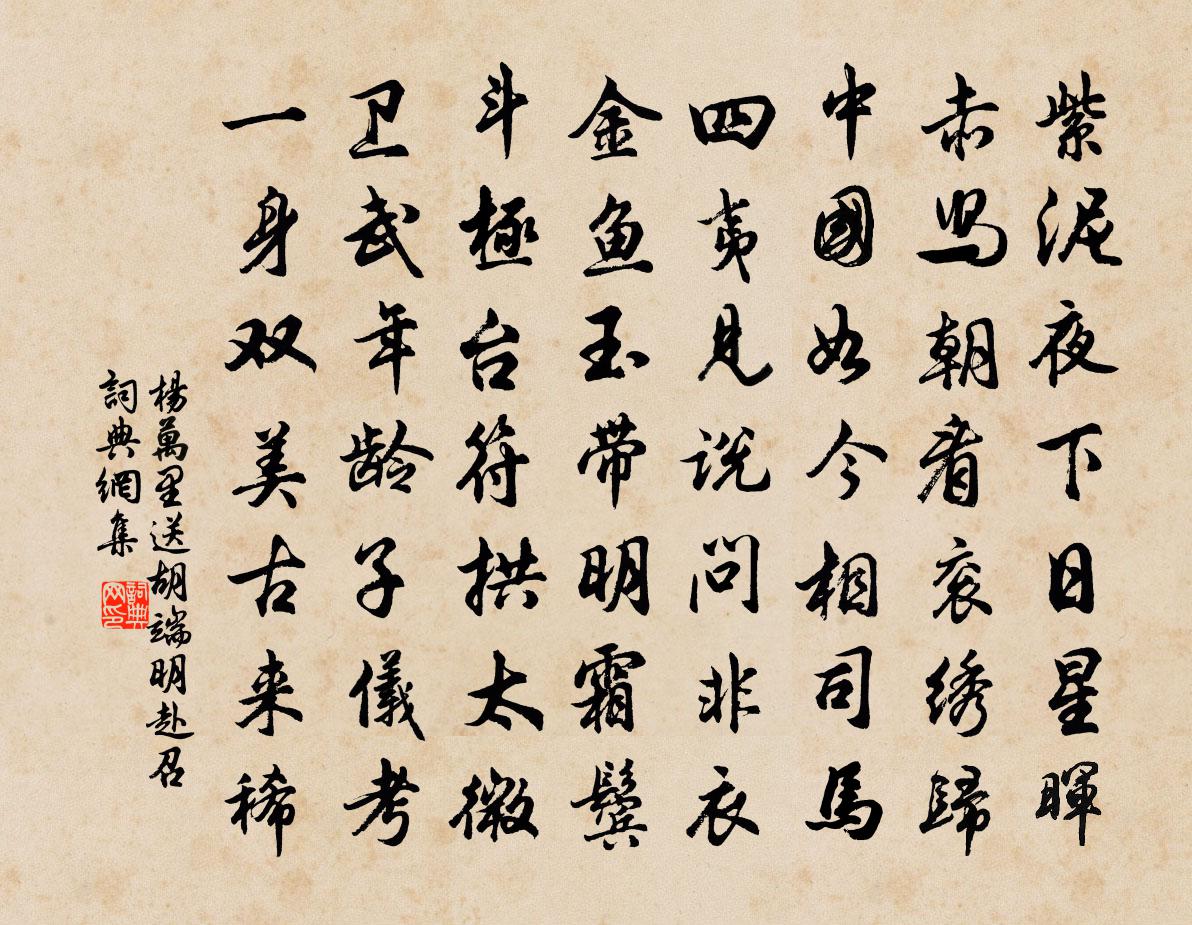 紫泥夜下日星暉
赤舄朝看衮绣歸
中國如今相司馬
四夷見説問非衣
金鱼玉带明霜鬓
斗極台符拱太微
卫武年龄子儀考
一身双美古来稀
楊萬里送胡端明赴召
詞典網集
詞典网印